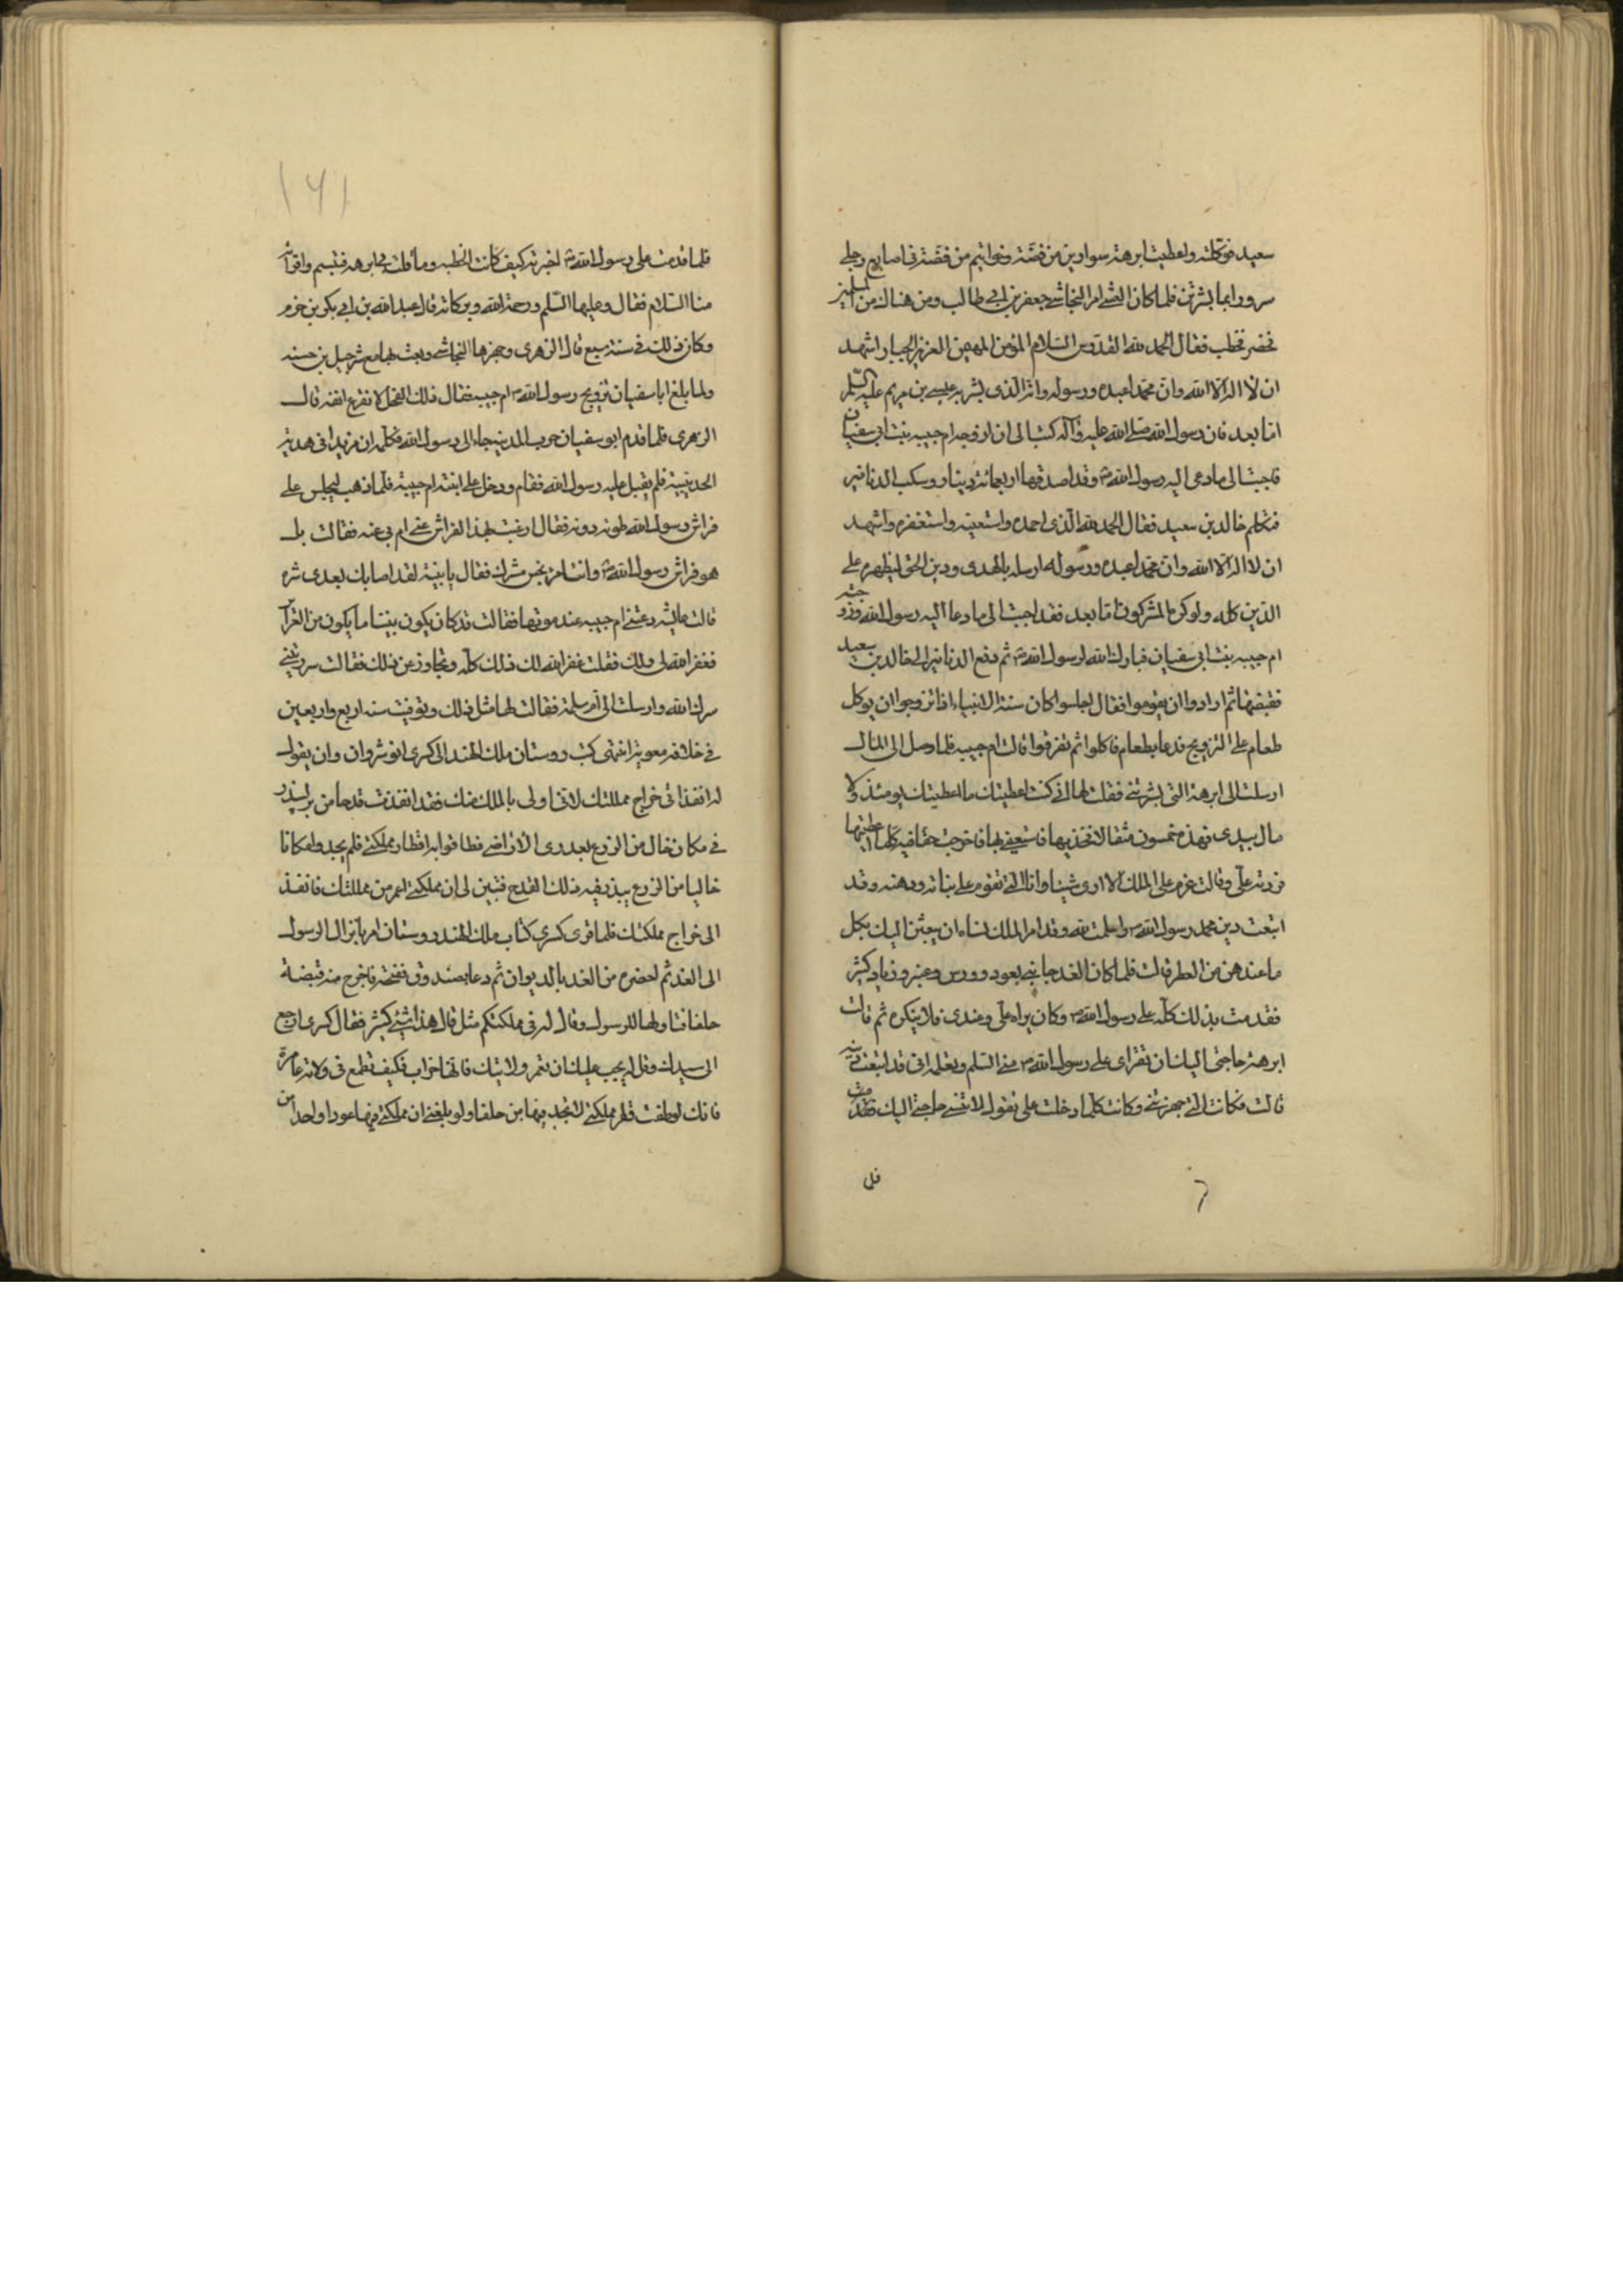 سعيد فوكلته واعطيت ابرهة سوارين من فضة وخواتيم من فضة في اصابع رجلي
سرورا بما بشرتني فلما كان العشي امر النجاشي جعفر بن ابي طالب ومن هناك من المسلمين
فحضر فخطب فقال الحمد لله القدوس السلام المؤمن المهيمن العزيز الجبار اشهد
ان لا اله الا الله وان محمدا عبده ورسوله وانه الذي بشر به عيسى بن مريم عليه السلم
اما بعد فان رسول الله صلى الله عليه وآله كتب الى ان ازوجه ام حبيبه بنت ابي سفيان
فاجبت الى ما دعى اليه رسول الله ص وقد اصدقها اربعمائة دينار وسكب الدنانير
فتكلم خالد بن سعيد فقال الحمد لله الذي احمده واستعينه واستغفره واشهد
ان لا اله الا الله وان محمدا عبده ورسوله ارسله بالهدى ودين الحق ليظهره على
الدين كله ولو كره المشركون اما بعد فقد اجبت الى ما دعا اليه رسول الله وزوجته
ام حبيبه بنت ابي سفيان فبارك الله لرسول الله ص ثم دفع الدنانير الى خالد بن سعيد
فقبضها ثم ارادوا ان يقوموا فقال اجلسوا كان سنة الانبياء اذا تزوجوا ان يوكل
طعام على التزويج فدعا بطعام فاكلوا ثم تفرقوا قالت ام حبيبه فلما وصل الى المال
ارسلت الى ابرهة التي بشرتني فقلت لها اني كنت اعطيتك ما اعطيتك يومئذ ولا
مال بيدي فهذه خمسون مثقالا فخذيها فاستعيني بها فاخرجت حقا فيه كلما اعطيتها
فردته علي وقالت عزم علي الملك الا ارزى شيئا وانا التي تقوم على بناته ودهنه وقد
اتبعت دين محمد رسول الله ص واسلمت لله وقد امر الملك نساءه ان يبعثن اليك بكل
ما عندهن من العطر قالت فلما كان الغد جاءتني بعود وورس وعنبر وزباد كثير
فقدمت بذلك كله على رسول الله ص وكان يراه علي وعندي فلا ينكره ثم قالت
ابرهة حاجتي اليك ان تقرأي على رسول الله ص مني السلم وتعلمه اني قد اتبعت دينه
قالت فكانت التي جهزتني وكانت كلما دخلت علي تقول لا تنسي حاجتي اليك فقدمت
فلما
فلما قدمت على رسول الله ص اخبرته كيف كانت الخطبه وما فعلت بي ابرهه فتبسم واقرأته
منها السلام فقال وعليها السلم ورحمة الله وبركاته قال عبد الله بن ابي بكر بن حزم
وكان ذلك في سنة سبع قال الزهري وجهزها النجاشي وبعث بها مع شرحبيل بن حسنه
ولما بلغ ابا سفيان تزويج رسول الله ص ام حبيبه فقال ذلك الفحل لا يقرع انفه قال
الزهري فلما قدم ابو سفيان حرب المدينه جاء الى رسول الله فكلمه ان يزيد في هدنة
الحديبية فلم يقبل عليه رسول الله فقام ودخل على ابنته ام حبيبة فلما ذهب ليجلس على
فراش رسول الله طوته دونه فقال ارغبت بهذا الفراش عني ام بي عنه فقالت بل
هو فراش رسول الله ص وانت امرؤ نجس مشرك فقال يا بنية لقد اصابك بعدي شره
قالت عايشه دعتني ام حبيبه عند موتها فقالت قد كان يكون بيننا ما يكون من الضرآئر
فغفر الله لي ولك فقلت غفر الله لك ذلك كله وتجاوز عن ذلك فقالت سررتيني
سرك الله وارسلت الى ام سلمة فقالت لها مثل ذلك وتوفيت سنه اربع واربعين
في خلافة معوية انتهى كتب روستان ملك الهند الى كسرى انوشروان وان يقول
له انفذ الي خراج مملكتك لاني اولى بالملك منك فقد انفذت قدحا من بر ليبذر
في مكان خال من الزرع بعد وي الاراضي فطافوا به اقطار مملكتي فلم يجدوا مكانا
خاليا من الزرع يبذر فيه ذلك القدح فتبين لي ان مملكتي اعمر من مملكتك فانفذ
الى خراج مملكتك فلما قرى كسرى كتاب ملك الهند روستان امر بانزال الرسول
الى الغد ثم احضره من الغد بالديوان ثم دعا بصندوق ففتحه فاخرج منه قبضة
حلفا فناولها للرسول وقال له في مملكتكم مثل قال هذا شيء كثير فقال كسرى ارجع
الى سيدك وقل له يجب عليك ان تعمر ولايتك فانها خراب فكيف تطمع في ولاية عامرة
فانك لو طفت قطر مملكتي لا تجد فيها من حلفا ولو بلغني ان مملكتي فيها عودا واحدا من